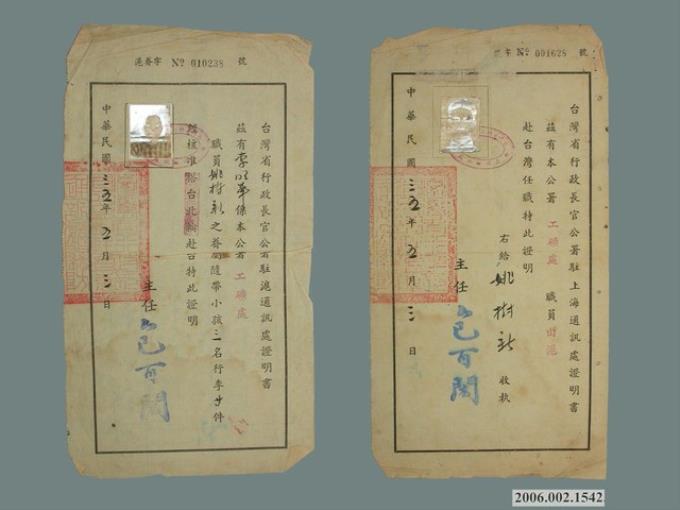 滬眷字 No 010238 號
台灣省行政長官公署駐滬通訊處證明書
茲有李 華係本公署工礦處
職員姚樹新之眷屬隨帶小孩三名行李 件
經核准搭台北輪赴台特此證明
主任 包可閎
中華民國三五年五月三日
字 No 001628 號
台灣省行政長官公署駐上海通訊處證明書
茲有本公署工礦處職員由滬
赴台灣任職特此證明
右給姚樹新收執
主任 包可閎
中華民國三五年五月三日
2006.002.1542